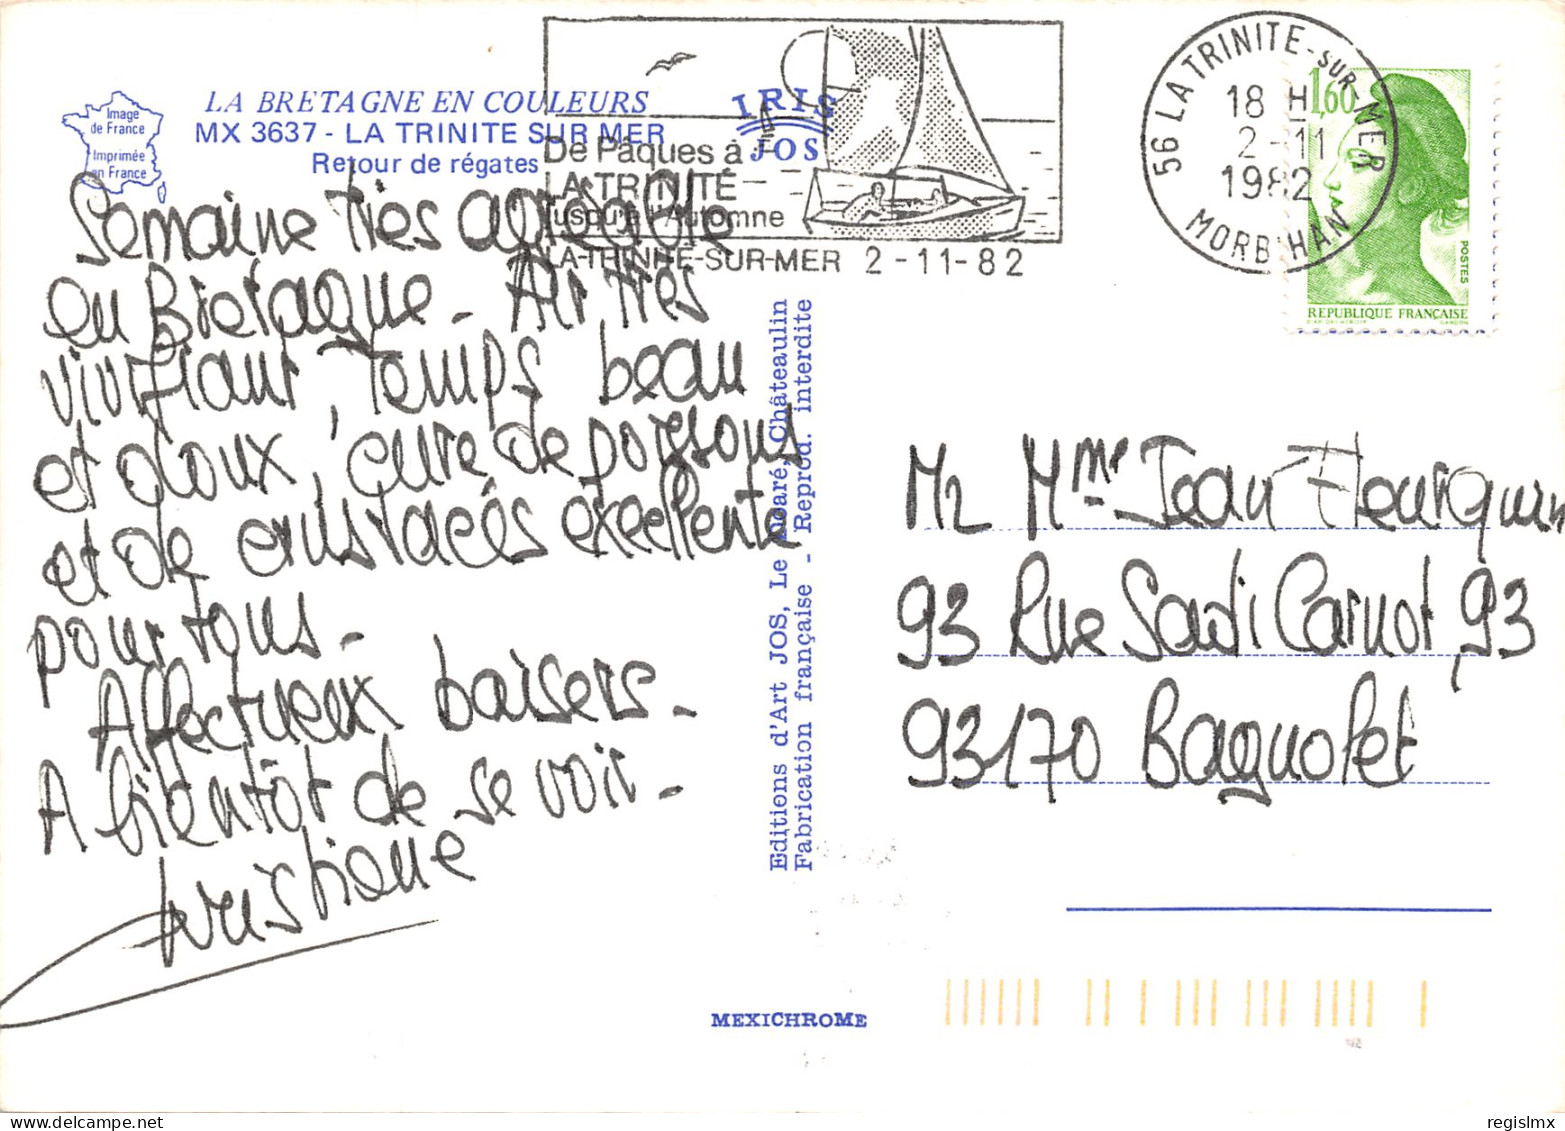 Image
de France
Imprimée
en France
LA BRETAGNE EN COULEURS
MX 3637 - LA TRINITE SUR MER
Retour de régates
IRIS
JOS
De Pâques à
LA TRINITÉ
Jusqu'à l'Automne
LA-TRINITE-SUR-MER 2-11-82
56 LA TRINITE-SUR-MER
18 H
2-11
1982
MORBIHAN
1,60
POSTES
REPUBLIQUE FRANÇAISE
Semaine très agréable
en Bretagne - Air très
vivifiant, temps beau
et doux, cure de poissons
et de crustacés excellente
pour tous -
Affectueux baisers -
A bientôt de se voir -
Christiane
Editions d'Art JOS, Le Doaré, Châteaulin
Fabrication française - Reprod. interdite
Mr Mme Jean Fleurquin
93 Rue Sadi Carnot, 93
93170 Bagnolet
MEXICHROME
regislmx